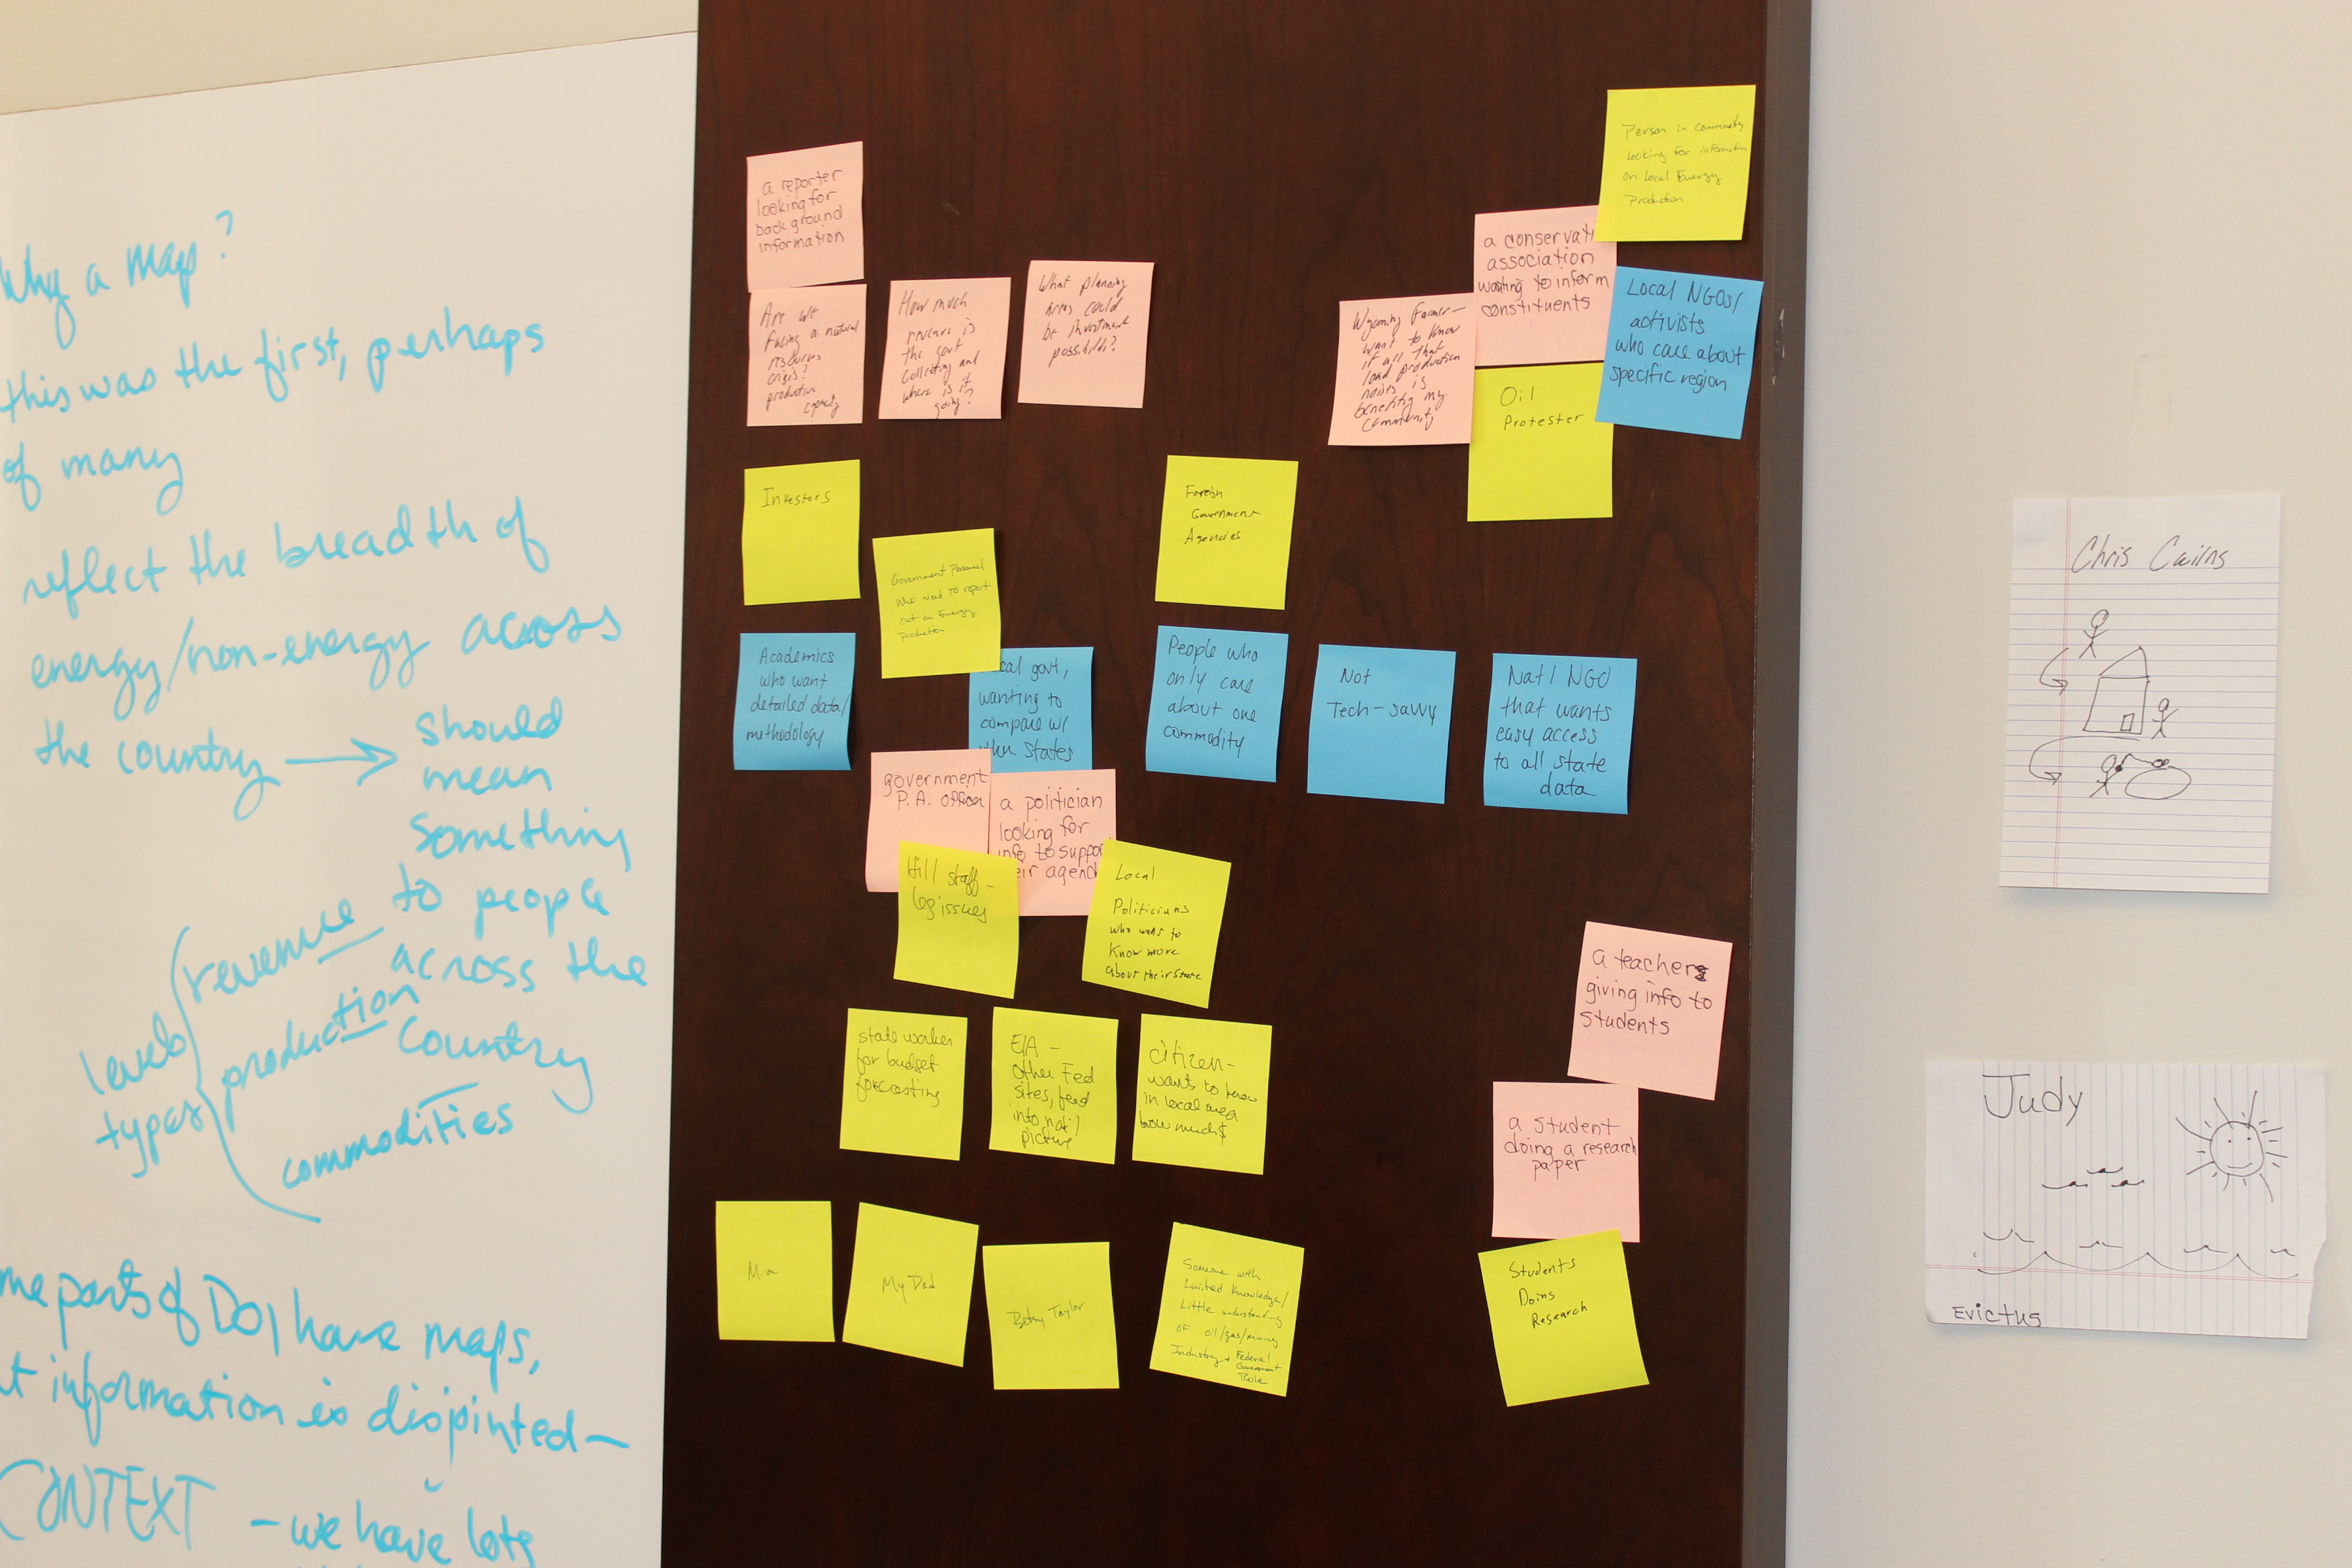 Why a map?
this was the first, perhaps
of many
reflect the breadth of
energy/non-energy across
the country → should
mean
something
to people
across the
country
levels
types
revenue
production
commodities
me parts of DOI have maps,
t information is disjointed—
CONTEXT - we have lots
a reporter
looking for
background
information
Are we
facing a natural
resources
crisis?
production
capacity
How much
revenue is
the govt
collecting and
where is it
going?
What planning
areas could
be investment
possibilities?
Wyoming farmer—
want to know
if all that
load production
noise is
benefiting my
community
a conservati
association
wanting to inform
constituents
Person in community
looking for information
on Local Energy
Production
Local NGOs/
activists
who care about
specific region
Oil
Protester
Investors
Government Personnel
who need to report
out on Energy
Production
Foreign
Government
Agencies
Academics
who want
detailed data/
methodology
cal govt,
wanting to
compare w/
other states
People who
only care
about one
commodity
Not
Tech-savvy
Nat'l NGO
that wants
easy access
to all state
data
government
P.A. officer
a politician
looking for
info to suppor
eir agend
Hill staff-
leg issues
Local
Politicians
who wants to
know more
about their state
state worker
for budget
forecasting
EIA -
other Fed
sites, feed
into nat'l
picture
citizen-
wants to know
in local area
how much $
a teacher
giving info to
students
a student
doing a research
paper
Mia
My Dad
Betsy Taylor
Someone with
Limited Knowledge/
Little understanding
of oil/gas/mining
Industry + Federal
Government
Role
Students
Doing
Research
Chris Cairns
Judy
Evictus